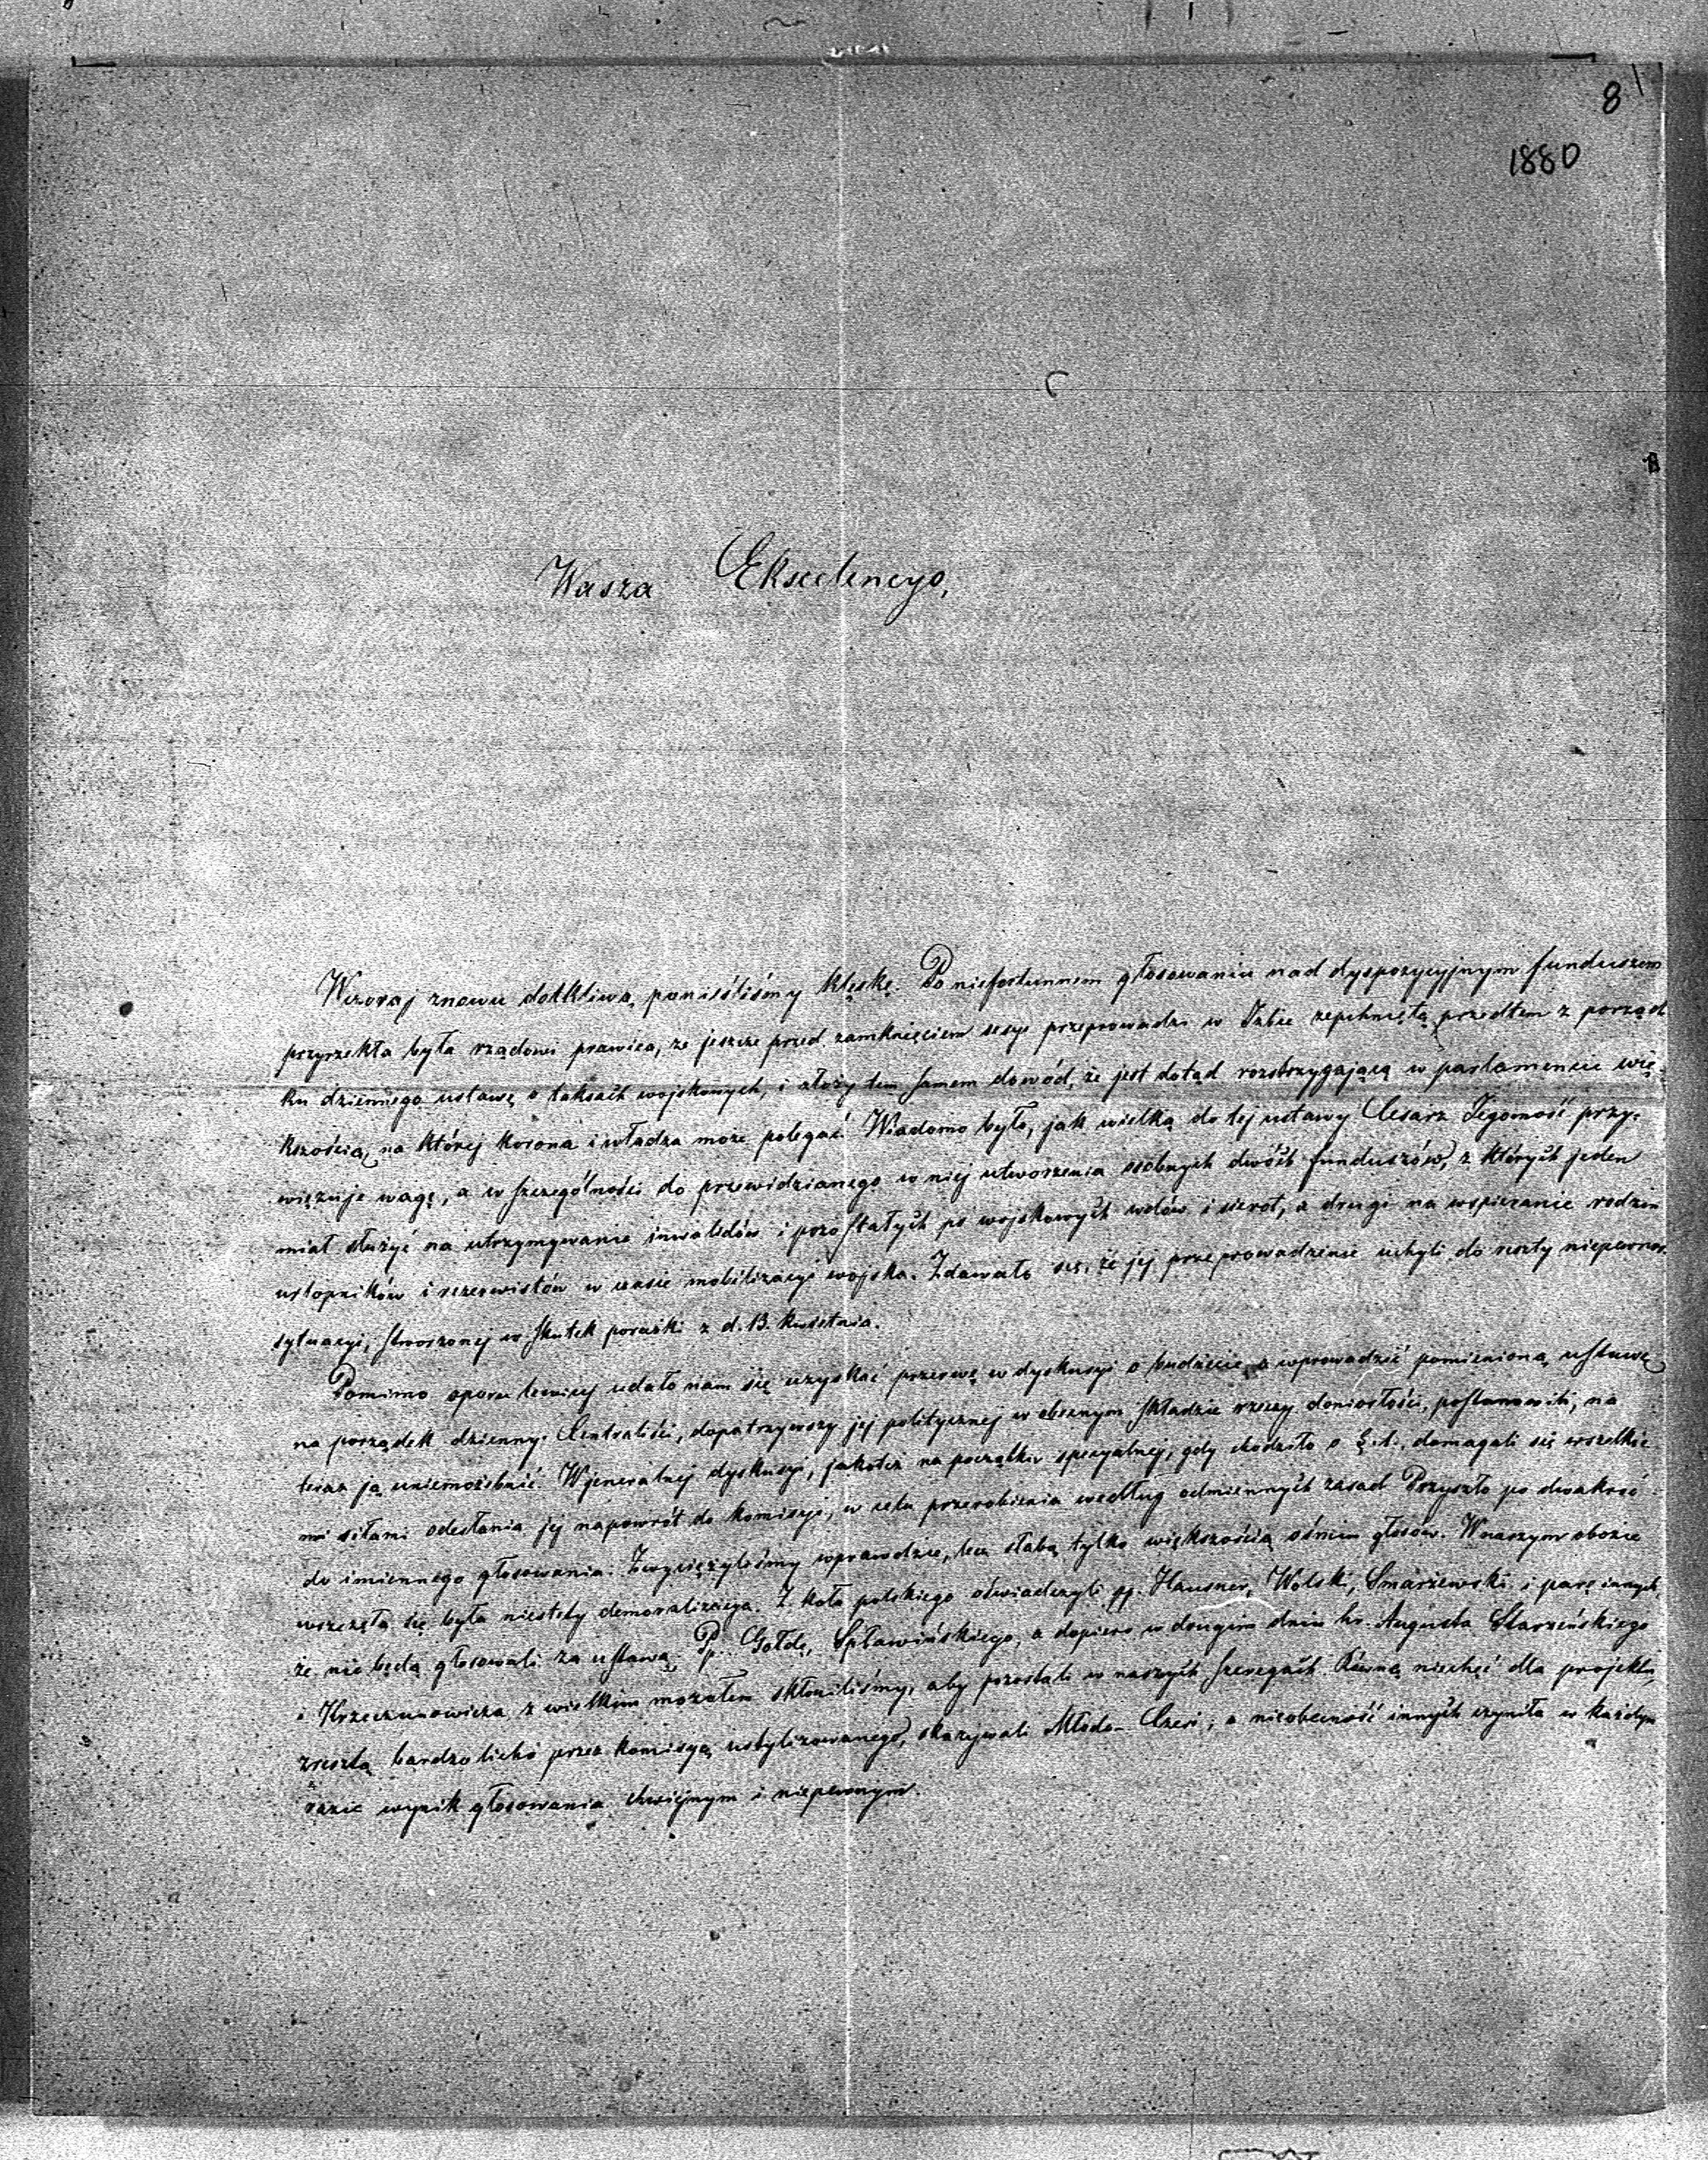 8
1880
Wasza Ekscelencyo,
Wczoraj znowu dotkliwą ponieśliśmy klęskę. Po niefortunnem głosowaniu nad dyspozycyjnym funduszem
przyrzekła była rządowi prawica, że jeszcze przed zamknięciem sesyi przeprowadzi w Izbie zepchniętą przedtem z porząd
ku dziennego ustawę o taksach wojskowych, i złoży tem samem dowód, że jest dotąd rozstrzygającą w parlamencie wię-
kszością, na której korona i władza może polegać. Wiadomo było, jak wielką do tej ustawy Cesarz Jegomość przy-
więzuje wagę, a w szczególności do przewidzianego w niej utworzenia osobnych dwóch funduszów, z których jeden
miał służyć na utrzymywanie inwalidów i pozostałych po wojskowych wdów i sierot, a drugi na wspieranie rodzin
urlopników i rezerwistów w czasie mobilizacyi wojska. Zdawało się, że jej przeprowadzenie uchyli do reszty niepewność
sytuacyi, stworzonej w skutek porażki z d. 13. kwietnia.
Pomimo oporu lewicy udało nam się uzyskać przerwę w dyskusyi o budżecie, a wprowadzić pomienioną ustawę
na porządek dzienny. Centraliści, dopatrzywszy jej politycznej w obecnym składzie rzeczy doniosłości, postanowili, na
teraz ją uniemożebnić. W jeneralnej dyskusyi, jakoteż na początku specyalnej, gdy chodziło o §. 1., domagali się wszelkie
mi siłami odesłania jej napowrót do komisyi, w celu przerobienia według odmiennych zasad. Przyszło po dwakroć
do imiennego głosowania. Zwyciężyliśmy wprawdzie, lecz słabą tylko większością ośmiu głosów. W naszym obozie
wszczęła się była niestety demoralizacya. Z koła polskiego oświadczyli pp. Hausner, Wolski, Smarzewski i parę innych,
że nie będą głosowali za ustawą. Pp. Gołdę, Spławińskiego, a dopiero w drugim dniu hr. Augusta Starzeńskiego
i Krzeczunowicza z wielkim mozołem skłoniliśmy, aby pozostali w naszych szeregach. Równą niechęć dla projektu,
zresztą bardzo licho przez komisyą ustylizowanego, okazywali Młodo-Czesi; a nieobecność innych czyniła w każdym
razie wynik głosowania chwiejnym i niepewnym.